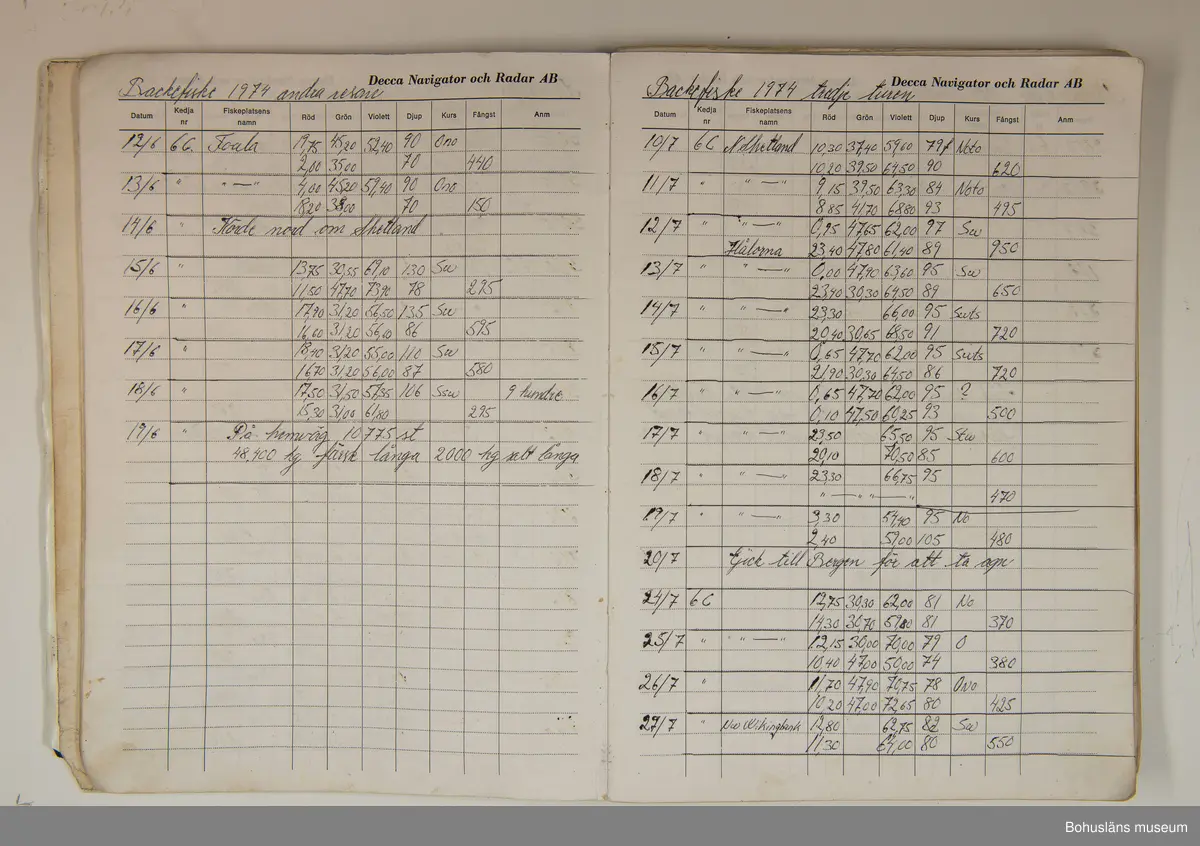 Decca Navigator och Radar AB
Backefiske 1974 andra resan
Datum Kedja nr Fiskeplatsens namn Röd Grön Violett Djup Kurs Fångst Anm
12/6 6C. Foula 19,75 45,20 52,40 90 Ono
2,00 35,00 70 440
13/6 " " — " 4,00 45,20 59,40 90 Ono
18,20 38,00 70 150
14/6 " Körde nord om Shetland
15/6 " 13,75 30,55 69,10 130 Sw
11,50 47,70 73,90 78 295
16/6 " 17,90 31,20 56,50 135 Sw
16,60 31,20 56,10 86 595
17/6 " 18,40 31,20 55,00 110 Sw
16,70 31,20 56,00 87 580
18/6 " 17,50 31,50 57,35 106 Ssw 9 hundre
15,30 31,00 61,80 295
19/6 " På hemväg 10775 st
48,400 kg färsk långa 2000 kg salt långa
Decca Navigator och Radar AB
Backefiske 1974 tredje turen
Datum Kedja nr Fiskeplatsens namn Röd Grön Violett Djup Kurs Fångst Anm
10/7 6C N Shetland 10,30 37,40 59,60 79f Noto
10,20 39,50 64,50 90 620
11/7 " " — " 9,15 39,50 63,30 84 Noto
8,85 41,70 68,80 93 495
12/7 " " — " 0,95 47,65 62,00 97 Sw
Hålorna 23,40 47,80 61,40 89 950
13/7 " " — " 0,00 47,90 63,60 95 Sw
23,40 30,30 64,50 89 650
14/7 " " — " 23,30 66,00 95 Swts
20,40 30,65 68,50 91 720
15/7 " " — " 0,65 47,70 62,00 95 Swts
21,90 30,30 64,50 86 720
16/7 " " — " 0,65 47,70 62,00 95 ?
0,10 47,50 60,25 93 500
17/7 " " — " 23,50 65,50 95 Stw
20,10 70,50 85 600
18/7 " " — " 23,30 66,75 95
" — " — " 470
19/7 " " — " 3,30 54,40 95 No
2,40 59,00 105 480
20/7 Gick till Bergen för att ta agn
24/7 6C 12,75 30,30 62,00 81 No
14,30 30,70 59,80 81 370
25/7 " " — " 12,15 30,00 70,00 79 O
10,40 47,00 50,00 74 380
26/7 " 11,70 47,90 70,75 78 Ono
10,20 47,00 72,65 80 425
27/7 " Nw Wikingbank 12,80 62,75 82 Sw
11,30 64,00 80 550
Bohusläns museum